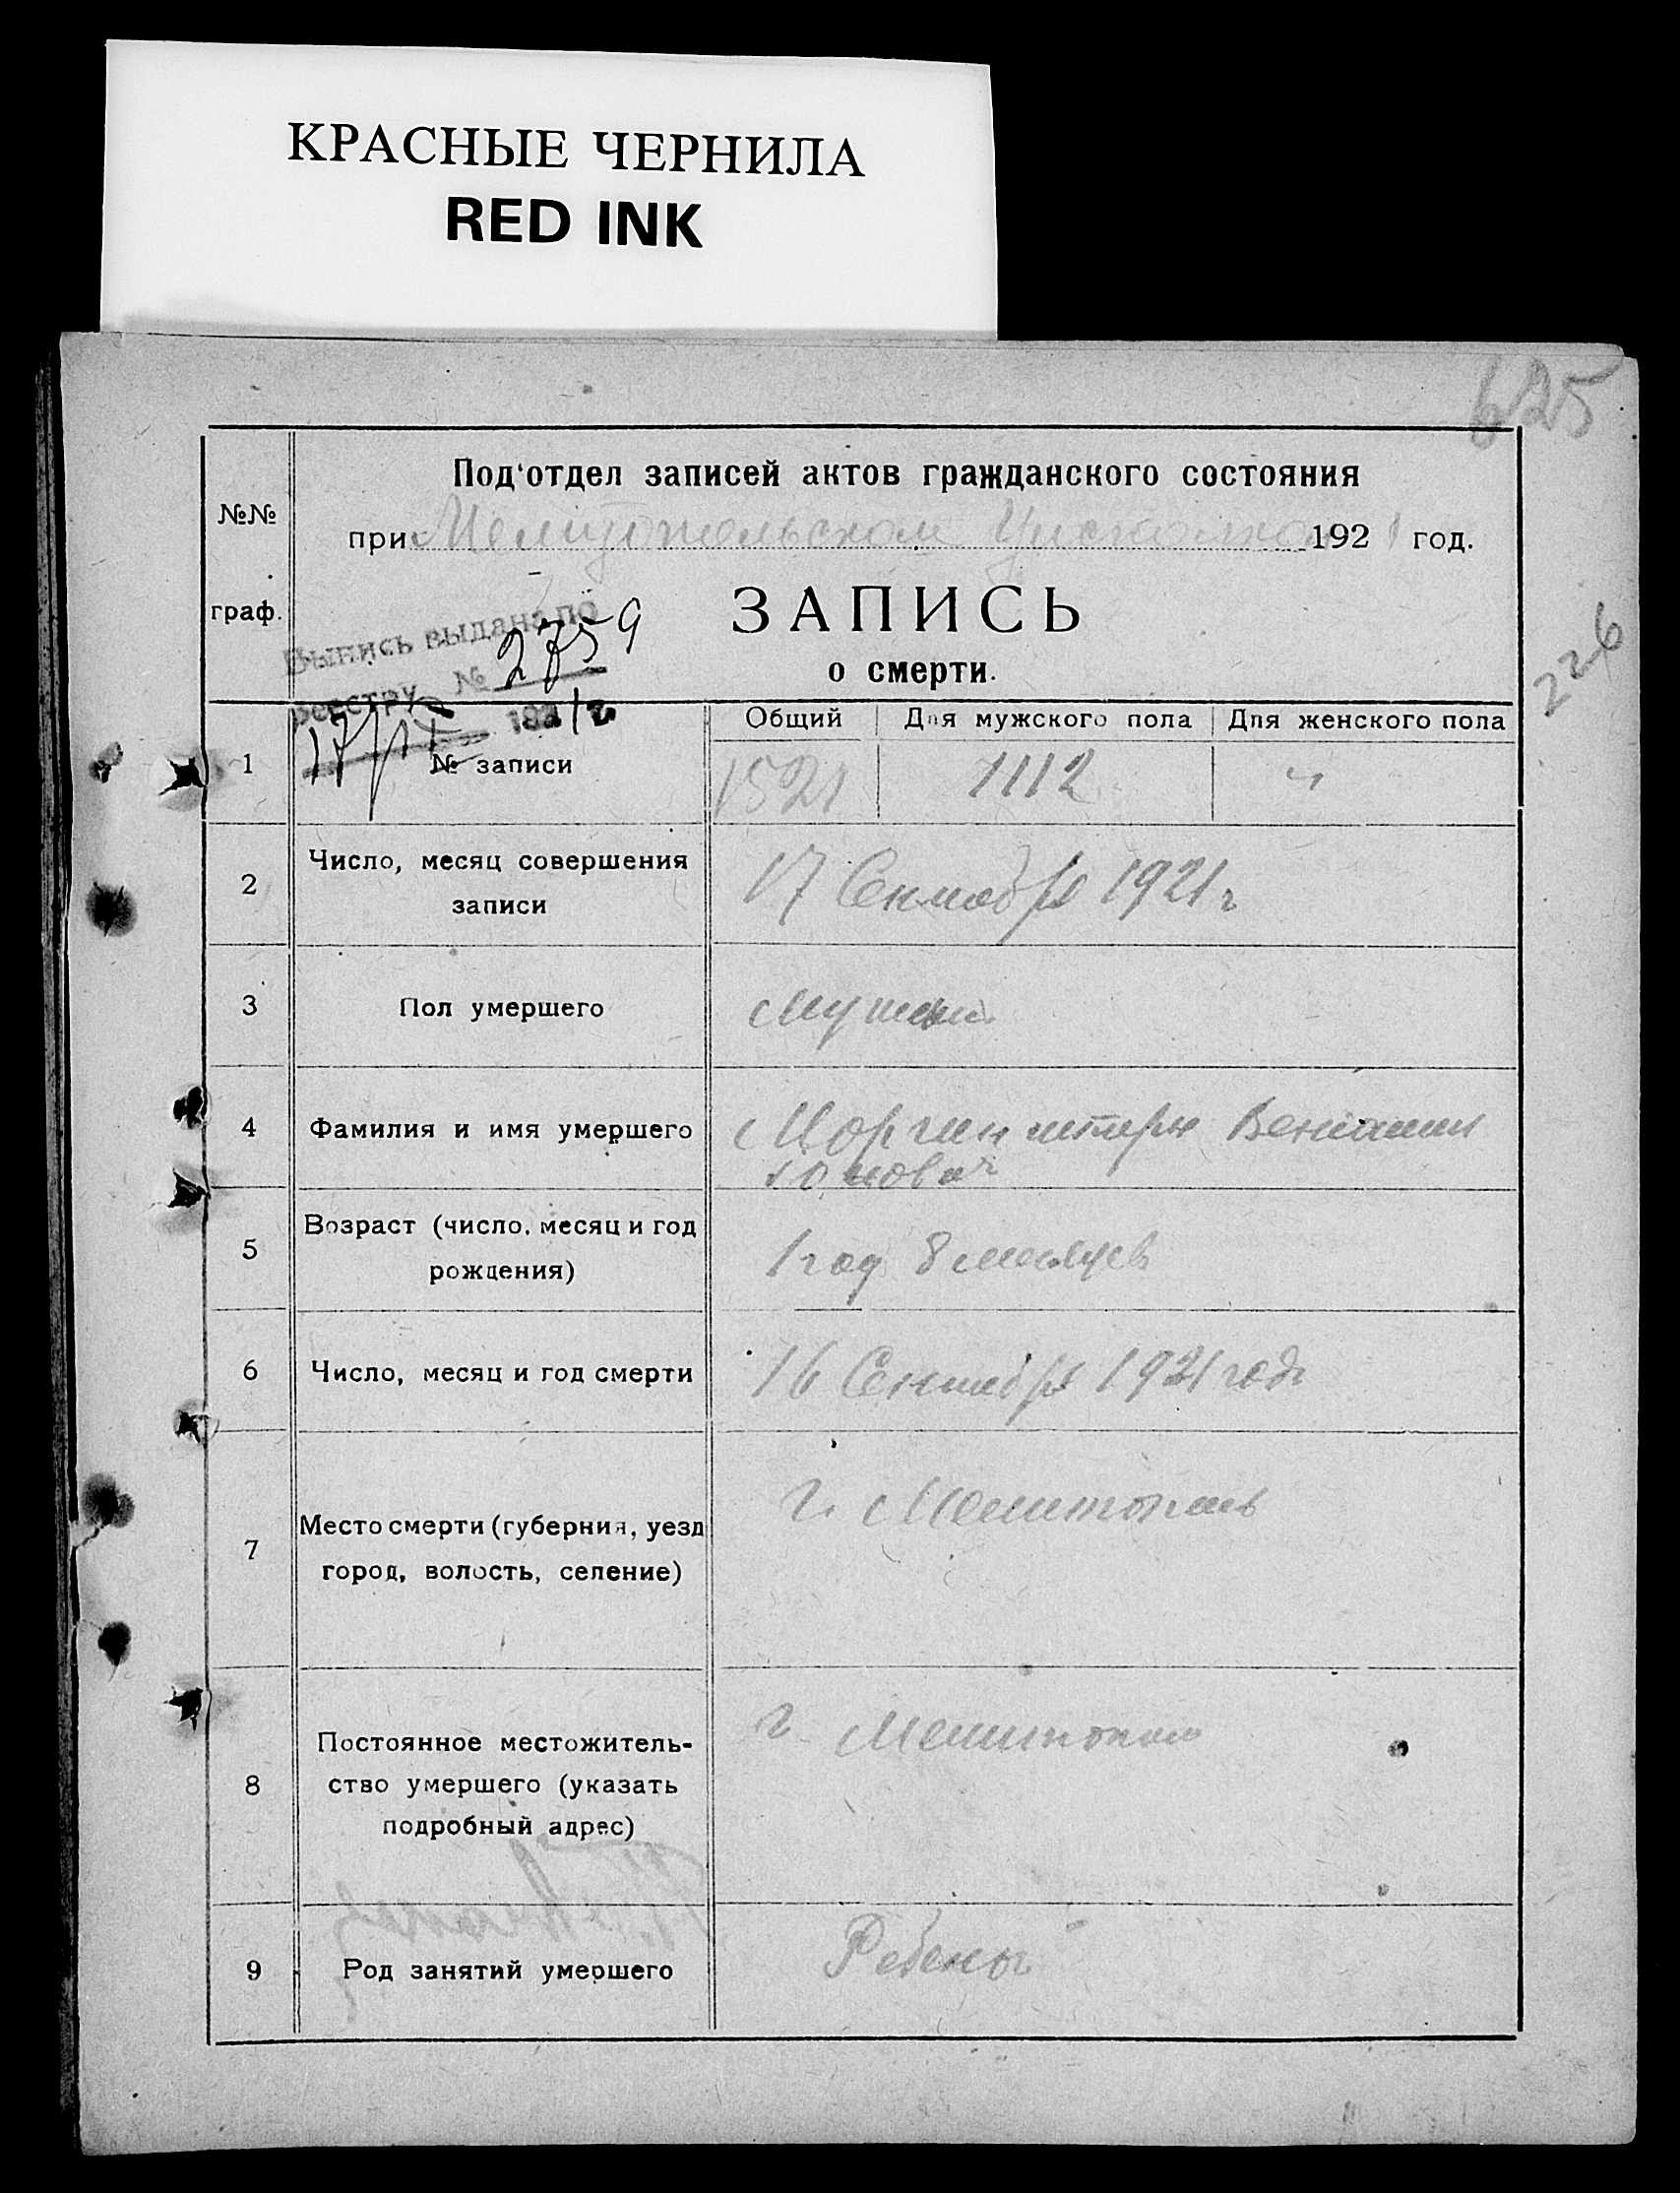 КРАСНЫЕ ЧЕРНИЛА
RED INK
625
Под‘отдел записей актов гражданского состояния
№№ граф.
при Мелитопольском 1921 год.
ЗАПИСЬ
о смерти.
226
Выпись выдана по
реестру № 2759
1921 г
Общий Для мужского пола Для женского пола
1 № записи 1521 1112 "
2 Число, месяц совершения
записи
17 Сентября 1921 г
3 Пол умершего
4 Фамилия и имя умершего Вениамин
5 Возраст (число, месяц и год
рождения)
1 год 8 месяцев
6 Число, месяц и год смерти 16 Сентября 1921 года
7 Место смерти (губерния, уезд
город, волость, селение)
г. Мелитополь
8 Постоянное местожитель-
ство умершего (указать
подробный адрес)
г Мелитополь
9 Род занятий умершего Ребенок